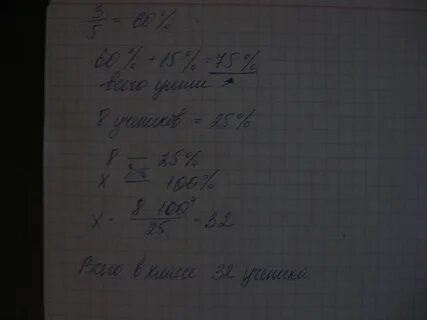 3/5 = 60%
60% + 15% = 75%
всего ушли
8 учеников = 25%
8 — 25%
x — 100%
x = 8 100⁴ / 25 = 32
Всего в классе 32 ученика.